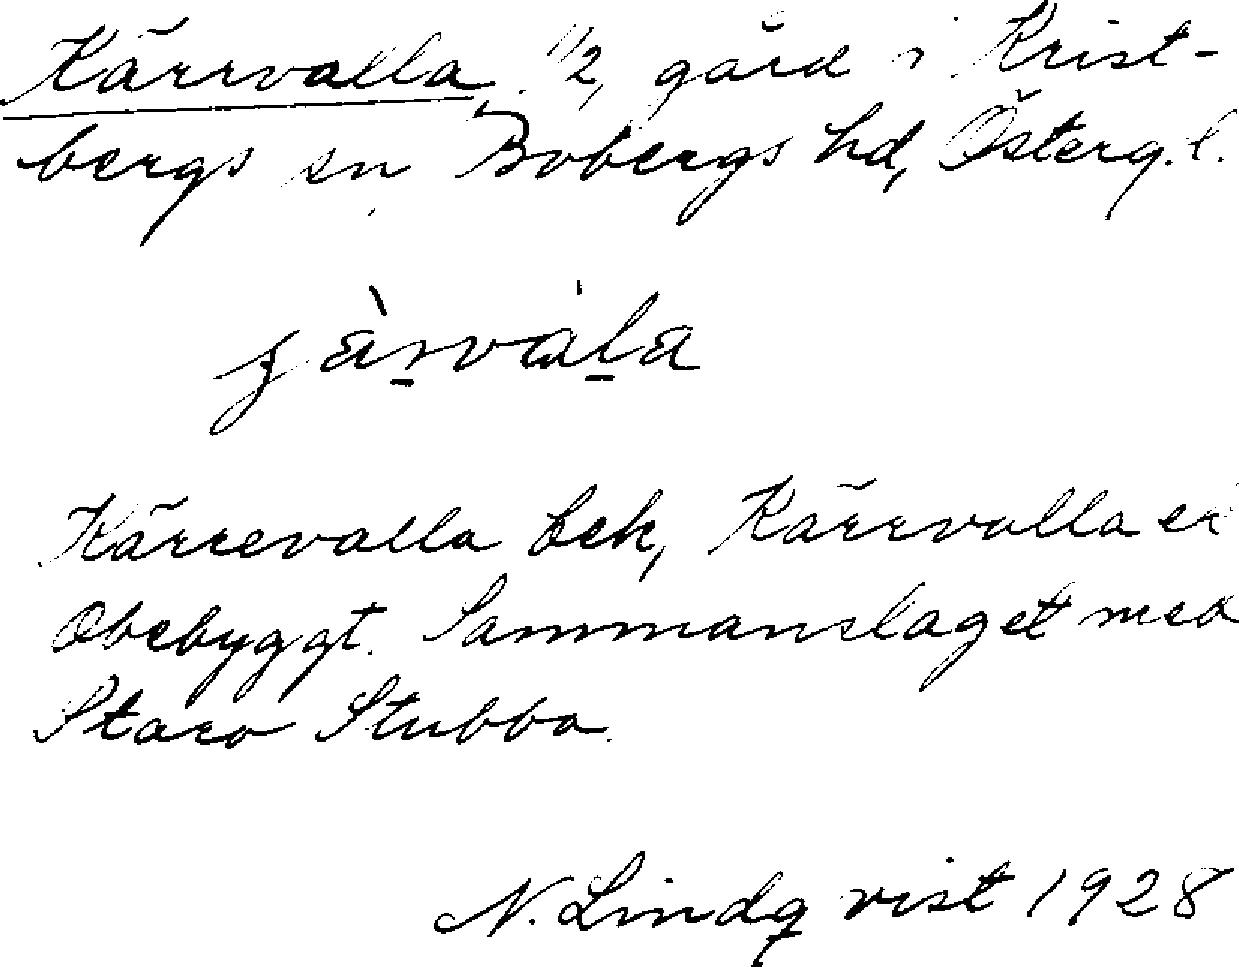 Kärrvalla, 1/2, gård i Krist-
bergs sn Bobergs hd, Österg. l.
Kärrevalla bek, Kärrvalla er
Obebyggt. Sammanslaget med
Stora Stubba.
N. Lindqvist 1928